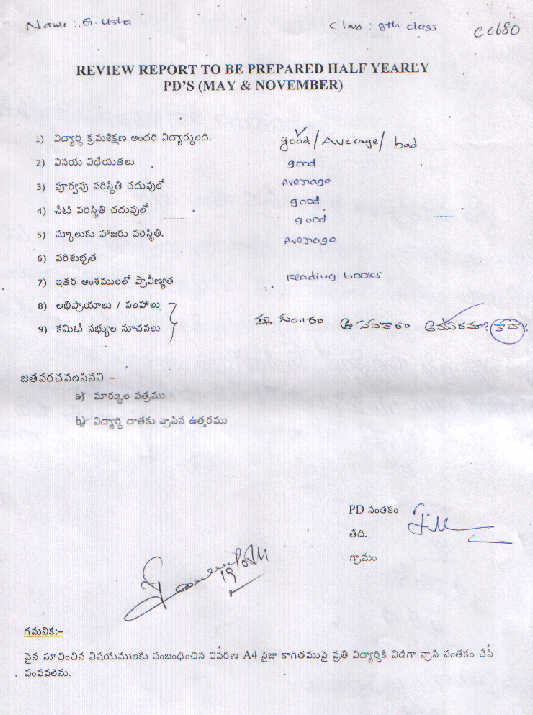 Name: G. Usha
Class: 8th class
CC680
REVIEW REPORT TO BE PREPARED HALF YEARLY
PD'S (MAY & NOVEMBER)
1) విద్యార్థి క్రమశిక్షణ అందరి విద్యార్థుంది. good / Average / bad
2) వినయ విధేయతలు good
3) పూర్వపు పరిస్థితి చదువులో Average
4) నేటి పరిస్థితి చదువులో good
5) స్కూలుకు హాజరు పరిస్థితి. good
6) పరిశుభ్రత Average
7) ఇతర అంశములలో ప్రావీణ్యత Reading books
8) అభిప్రాయాలు / సలహాలు
9) కమిటీ సభ్యుల సూచనలు
జతపరచవలసినవి :-
a) మార్కుల పత్రము
b) విద్యార్థి దాతకు వ్రాసిన ఉత్తరము
PD సంతకం
తేది.
గ్రామం
గమనిక:-
పైన సూచించిన విషయములకు సంబంధించిన వివరణ A4 సైజు కాగితముపై ప్రతి విద్యార్థికి విడిగా వ్రాసి సంతకం చేసి
పంపవలెను.